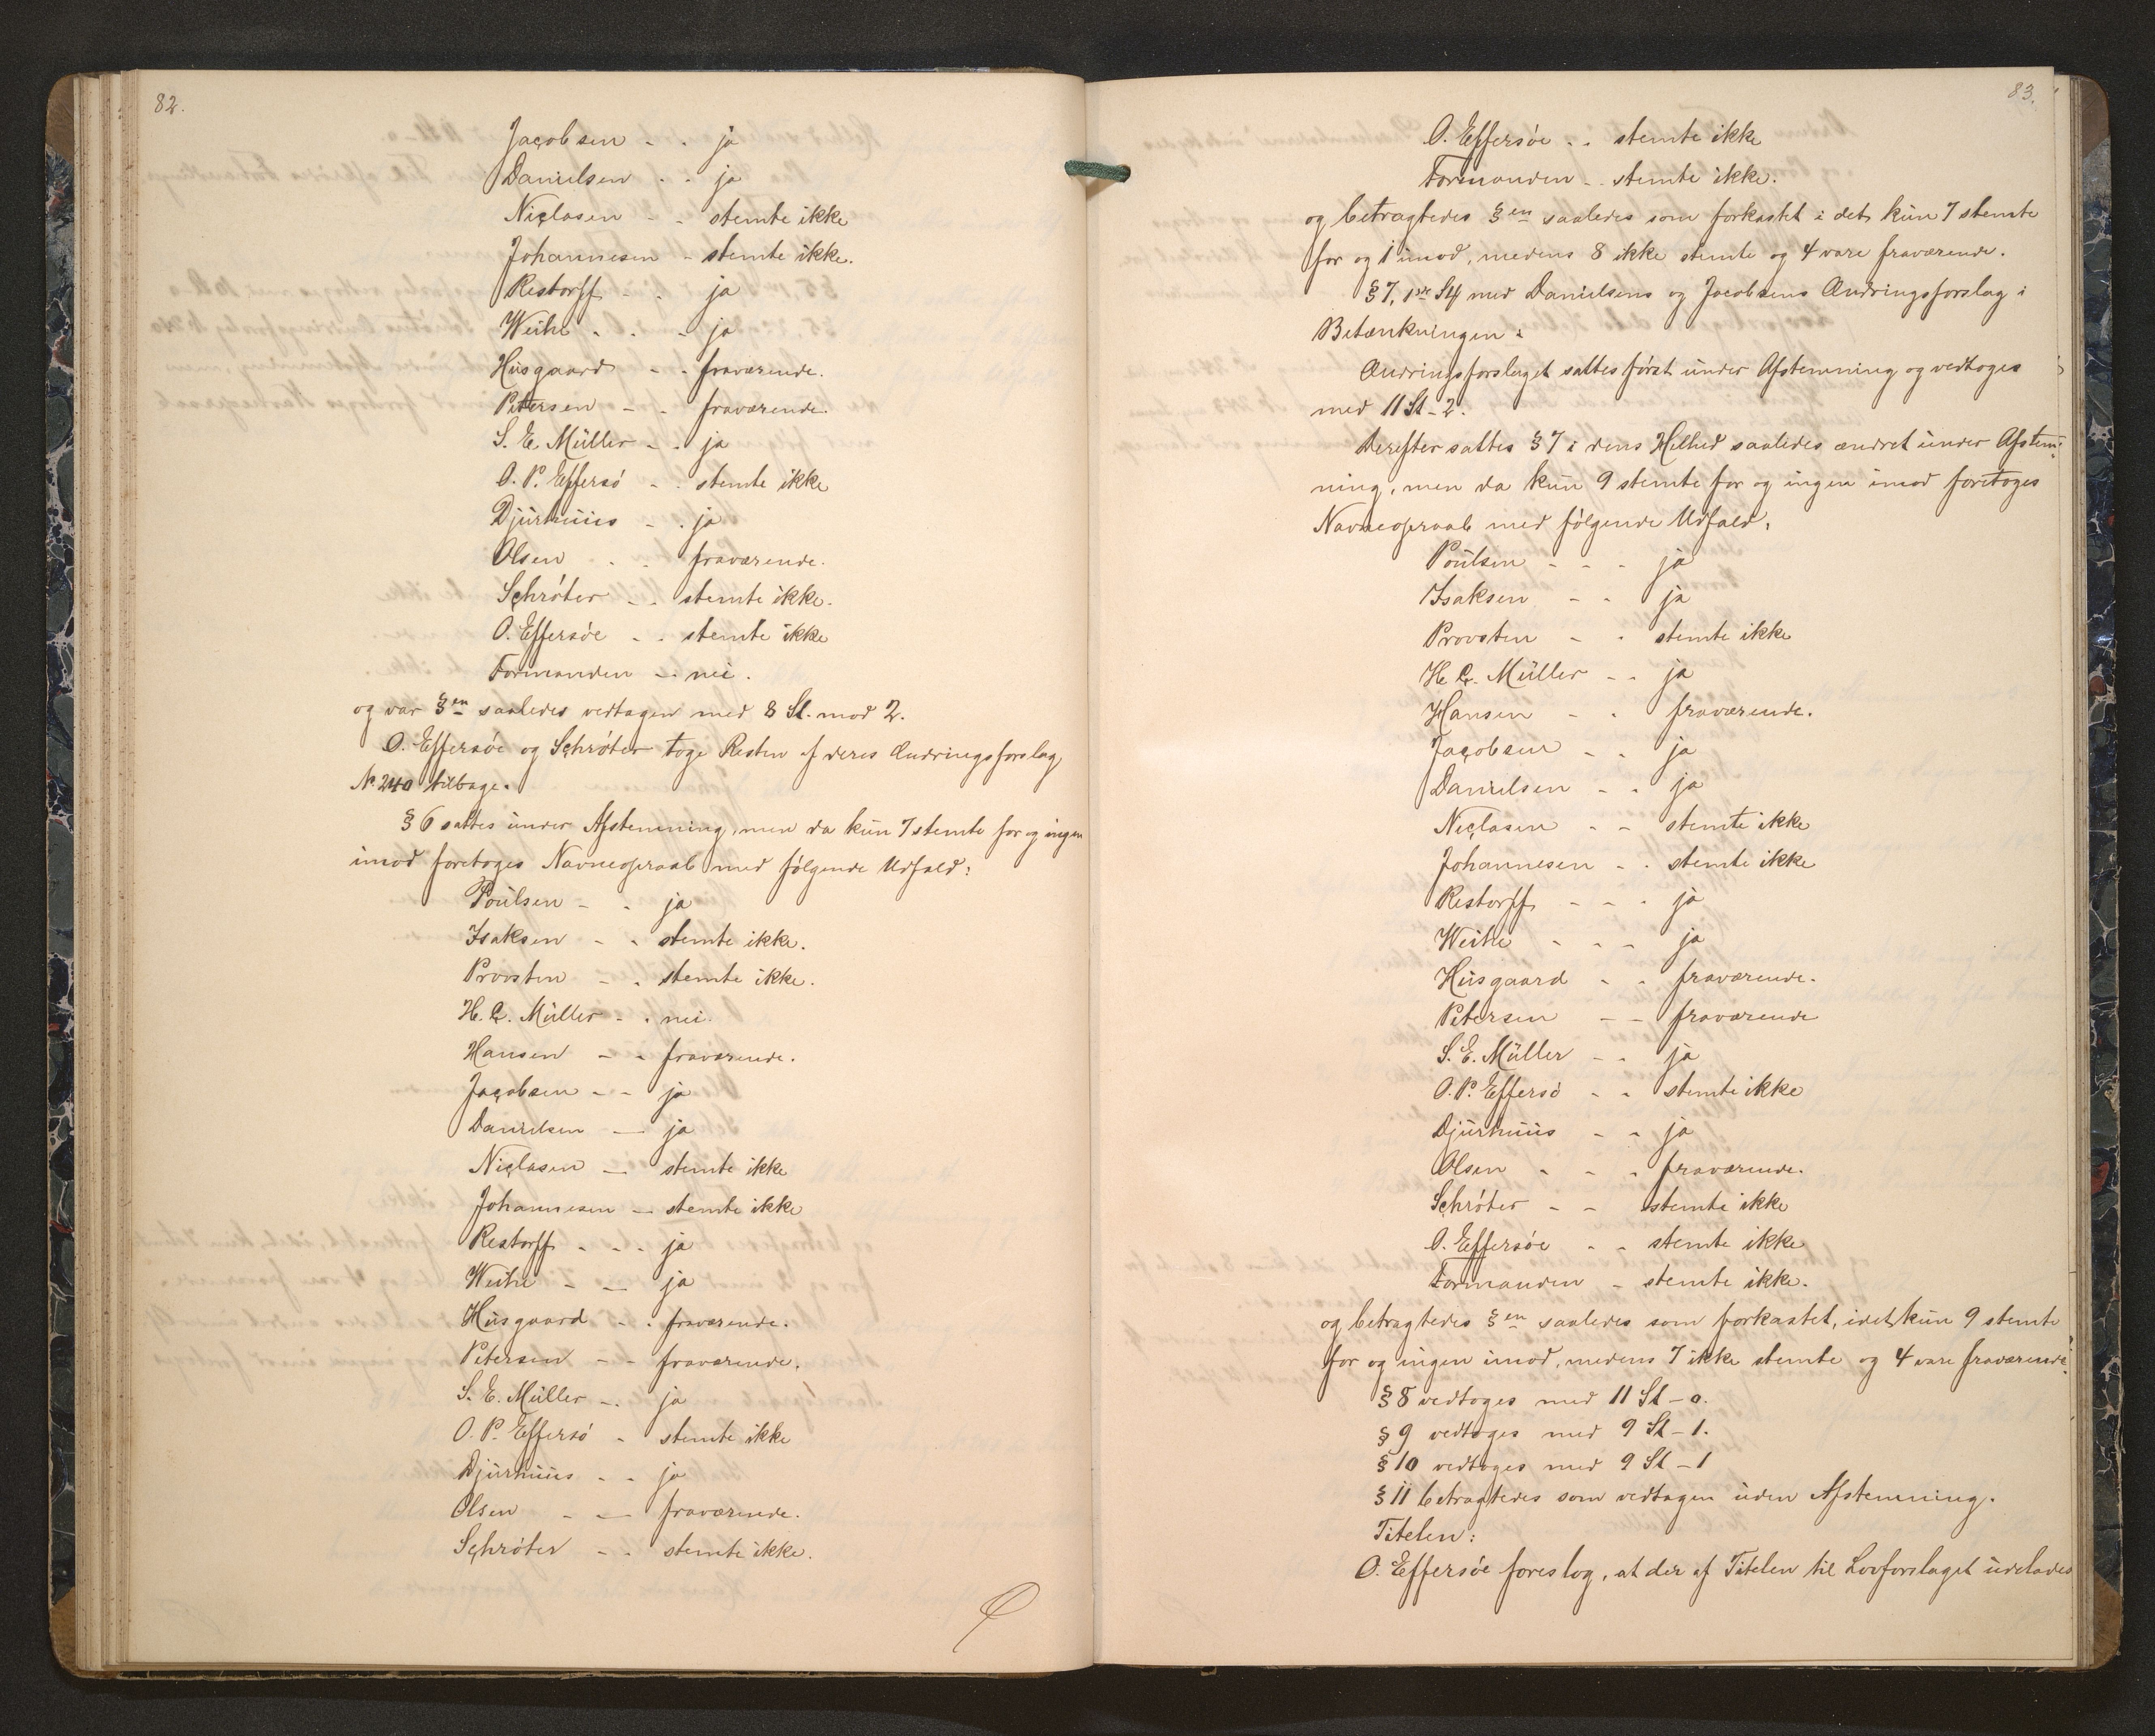 82.
Jacobsen - - ja
Danielsen - - ja
Niclasen - - stemte ikke
Johannesen - stemte ikke.
Restorff - - ja
Weihe - - - ja
Husgaard - - fraværende.
Petersen - - fraværende.
S. E. Müller - - ja
O. P. Effersö - - stemte ikke
Djurhuus - - ja
Olsen - - fraværende.
Schröter - - stemte ikke.
O. Effersöe - - stemte ikke
Formanden - - nei.
og var §en saaledes vedtagen med 8 St. mod 2.
O. Effersöe og Schröter toge Resten af deres Ændringsforslag
No 240 tilbage.
§ 6 sattes under Afstemning, men da kun 7 stemte for og ingen
imod foretoges Navneopraab med følgende Udfald:
Poulsen - - ja
Isaksen - - stemte ikke.
Provsten - - stemte ikke.
H. C. Müller - - nei.
Hansen - - fraværende.
Jacobsen - - ja
Danielsen — ja
Niclasen — stemte ikke
Johannesen — stemte ikke
Restorff - - - ja
Weihe - — ja
Husgaard - - fraværende.
Petersen - - fraværende.
S. E. Müller - - ja
O. P. Effersö - stemte ikke
Djurhuus - - ja
Olsen - — fraværende.
Schröter - - stemte ikke.
83.
O. Effersöe - - stemte ikke
Formanden - - stemte ikke.
og betragtedes §en saaledes som forkastet i det kun 7 stemte
for og 1 imod, medens 8 ikke stemte og 4 vare fraværende.
§ 7, 1ste St med Danielsens og Jacobsens Ændringsforslag i
Betænkningen:
Ændringsforslaget sattes først under Afstemning og vedtoges
med 11 St - 2.
Derefter sattes § 7 i dens Helhed saaledes ændret under Afstem-
ning, men da kun 9 stemte for og ingen imod foretoges
Navneopraab med følgende Udfald,
Poulsen - - - ja
Isaksen - - ja
Provsten - - stemte ikke
H. C. Müller - - ja
Hansen - - fraværende.
Jacobsen - - ja
Danielsen - - ja
Niclasen - - stemte ikke
Johannesen - - stemte ikke
Restorff - - - ja
Weihe - - - ja
Husgaard - - fraværende.
Petersen - - fraværende
S. E. Müller - - ja
O. P. Effersö - - stemte ikke
Djurhuus - - ja
Olsen - - - fraværende.
Schröter - - stemte ikke
O. Effersöe - - stemte ikke
Formanden - stemte ikke.
og betragtedes §en saaledes som forkastet, idet kun 9 stemte
for og ingen imod, medens 7 ikke stemte og 4 vare fraværende.
§ 8 vedtoges med 11 St - 0.
§ 9 vedtoges med 9 St - 1.
§ 10 vedtoges med 9 St - 1
§ 11 betragtedes som vedtagen uden Afstemning.
Titelen:
O. Effersöe foreslog, at der af Titelen til Lovforslaget udelades